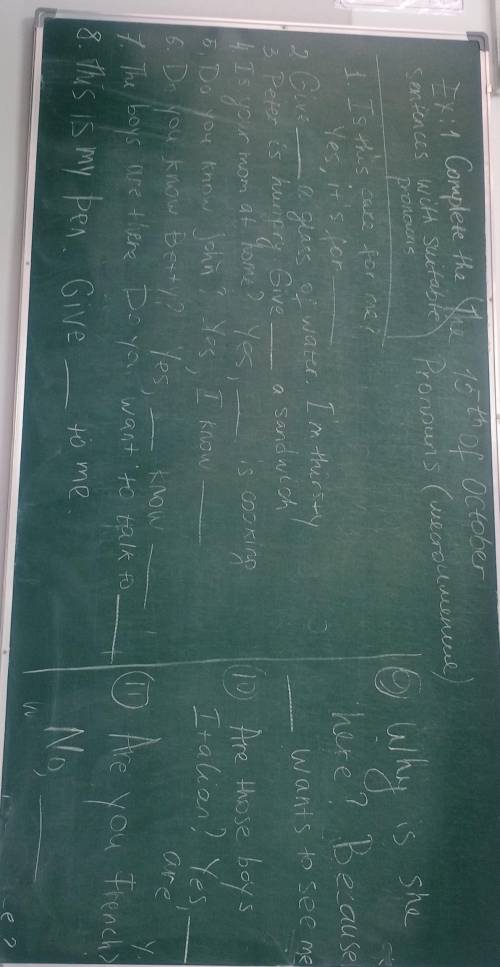 The 15th of October
Ex:1 Complete the Pronouns (местоимение)
sentences with suitable
pronouns
1. Is this cake for me?
Yes, it's for ____
2 Give ____ a glass of water. I'm thirsty
3. Peter is hungry Give ____ a sandwich
4 Is your mom at home? Yes, ____ is cooking
5. Do you know John? Yes, I know ____
6. Do you know Betty? Yes, ____ know ____
7. The boys are there Do you want to talk to ____
8. This is my pen. Give ____ to me.
Why is she
here? Because
____ wants to see me
10 Are those boys
Italian? Yes, ____
are
11 Are you french?
No, ____